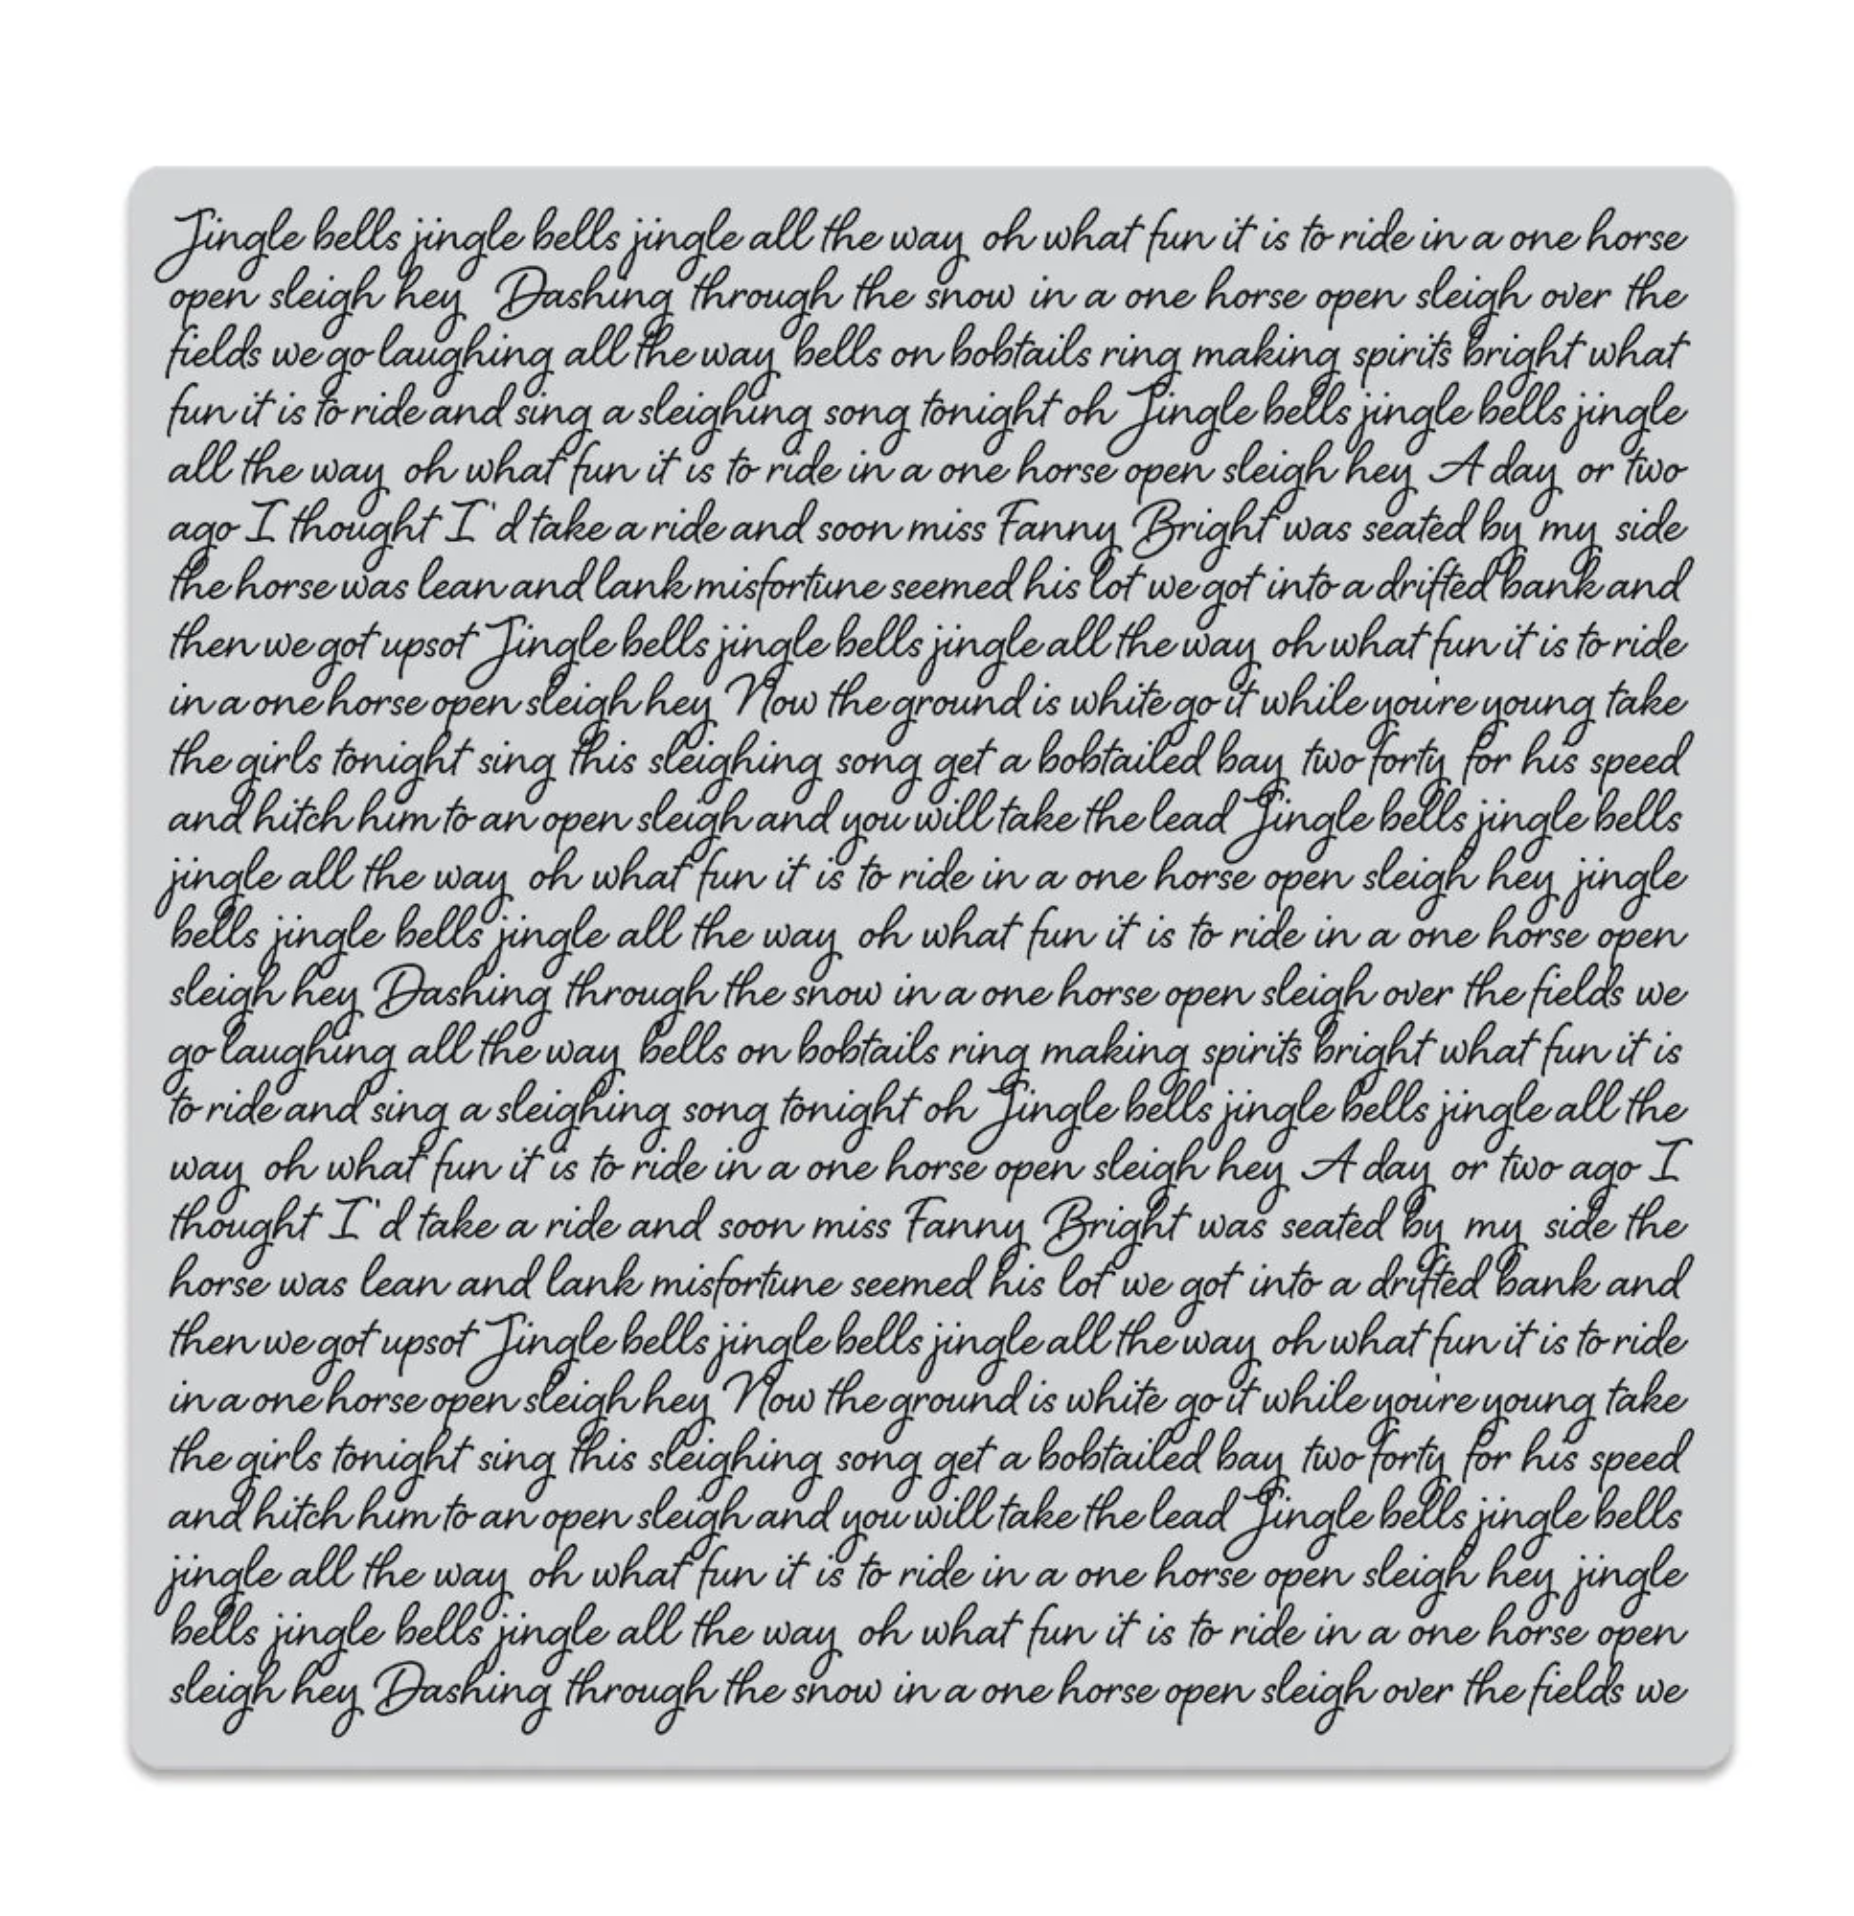 Jingle bells jingle bells jingle all the way oh what fun it is to ride in a one horse
open sleigh hey Dashing through the snow in a one horse open sleigh over the
fields we go laughing all the way bells on bobtails ring making spirits bright what
fun it is to ride and sing a sleighing song tonight oh Jingle bells jingle bells jingle
all the way oh what fun it is to ride in a one horse open sleigh hey A day or two
ago I thought I'd take a ride and soon miss Fanny Bright was seated by my side
the horse was lean and lank misfortune seemed his lot we got into a drifted bank and
then we got upsot Jingle bells jingle bells jingle all the way oh what fun it is to ride
in a one horse open sleigh hey Now the ground is white go it while you're young take
the girls tonight sing this sleighing song get a bobtailed bay two forty for his speed
and hitch him to an open sleigh and you will take the lead Jingle bells jingle bells
jingle all the way oh what fun it is to ride in a one horse open sleigh hey jingle
bells jingle bells jingle all the way oh what fun it is to ride in a one horse open
sleigh hey Dashing through the snow in a one horse open sleigh over the fields we
go laughing all the way bells on bobtails ring making spirits bright what fun it is
to ride and sing a sleighing song tonight oh Jingle bells jingle bells jingle all the
way oh what fun it is to ride in a one horse open sleigh hey A day or two ago I
thought I'd take a ride and soon miss Fanny Bright was seated by my side the
horse was lean and lank misfortune seemed his lot we got into a drifted bank and
then we got upsot Jingle bells jingle bells jingle all the way oh what fun it is to ride
in a one horse open sleigh hey Now the ground is white go it while you're young take
the girls tonight sing this sleighing song get a bobtailed bay two forty for his speed
and hitch him to an open sleigh and you will take the lead Jingle bells jingle bells
jingle all the way oh what fun it is to ride in a one horse open sleigh hey jingle
bells jingle bells jingle all the way oh what fun it is to ride in a one horse open
sleigh hey Dashing through the snow in a one horse open sleigh over the fields we